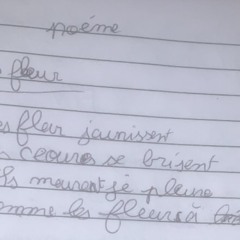 poéme
fleur
es fleur jaunissent
ceours se brisent
ls meurant je pleure
omme les fleurs à